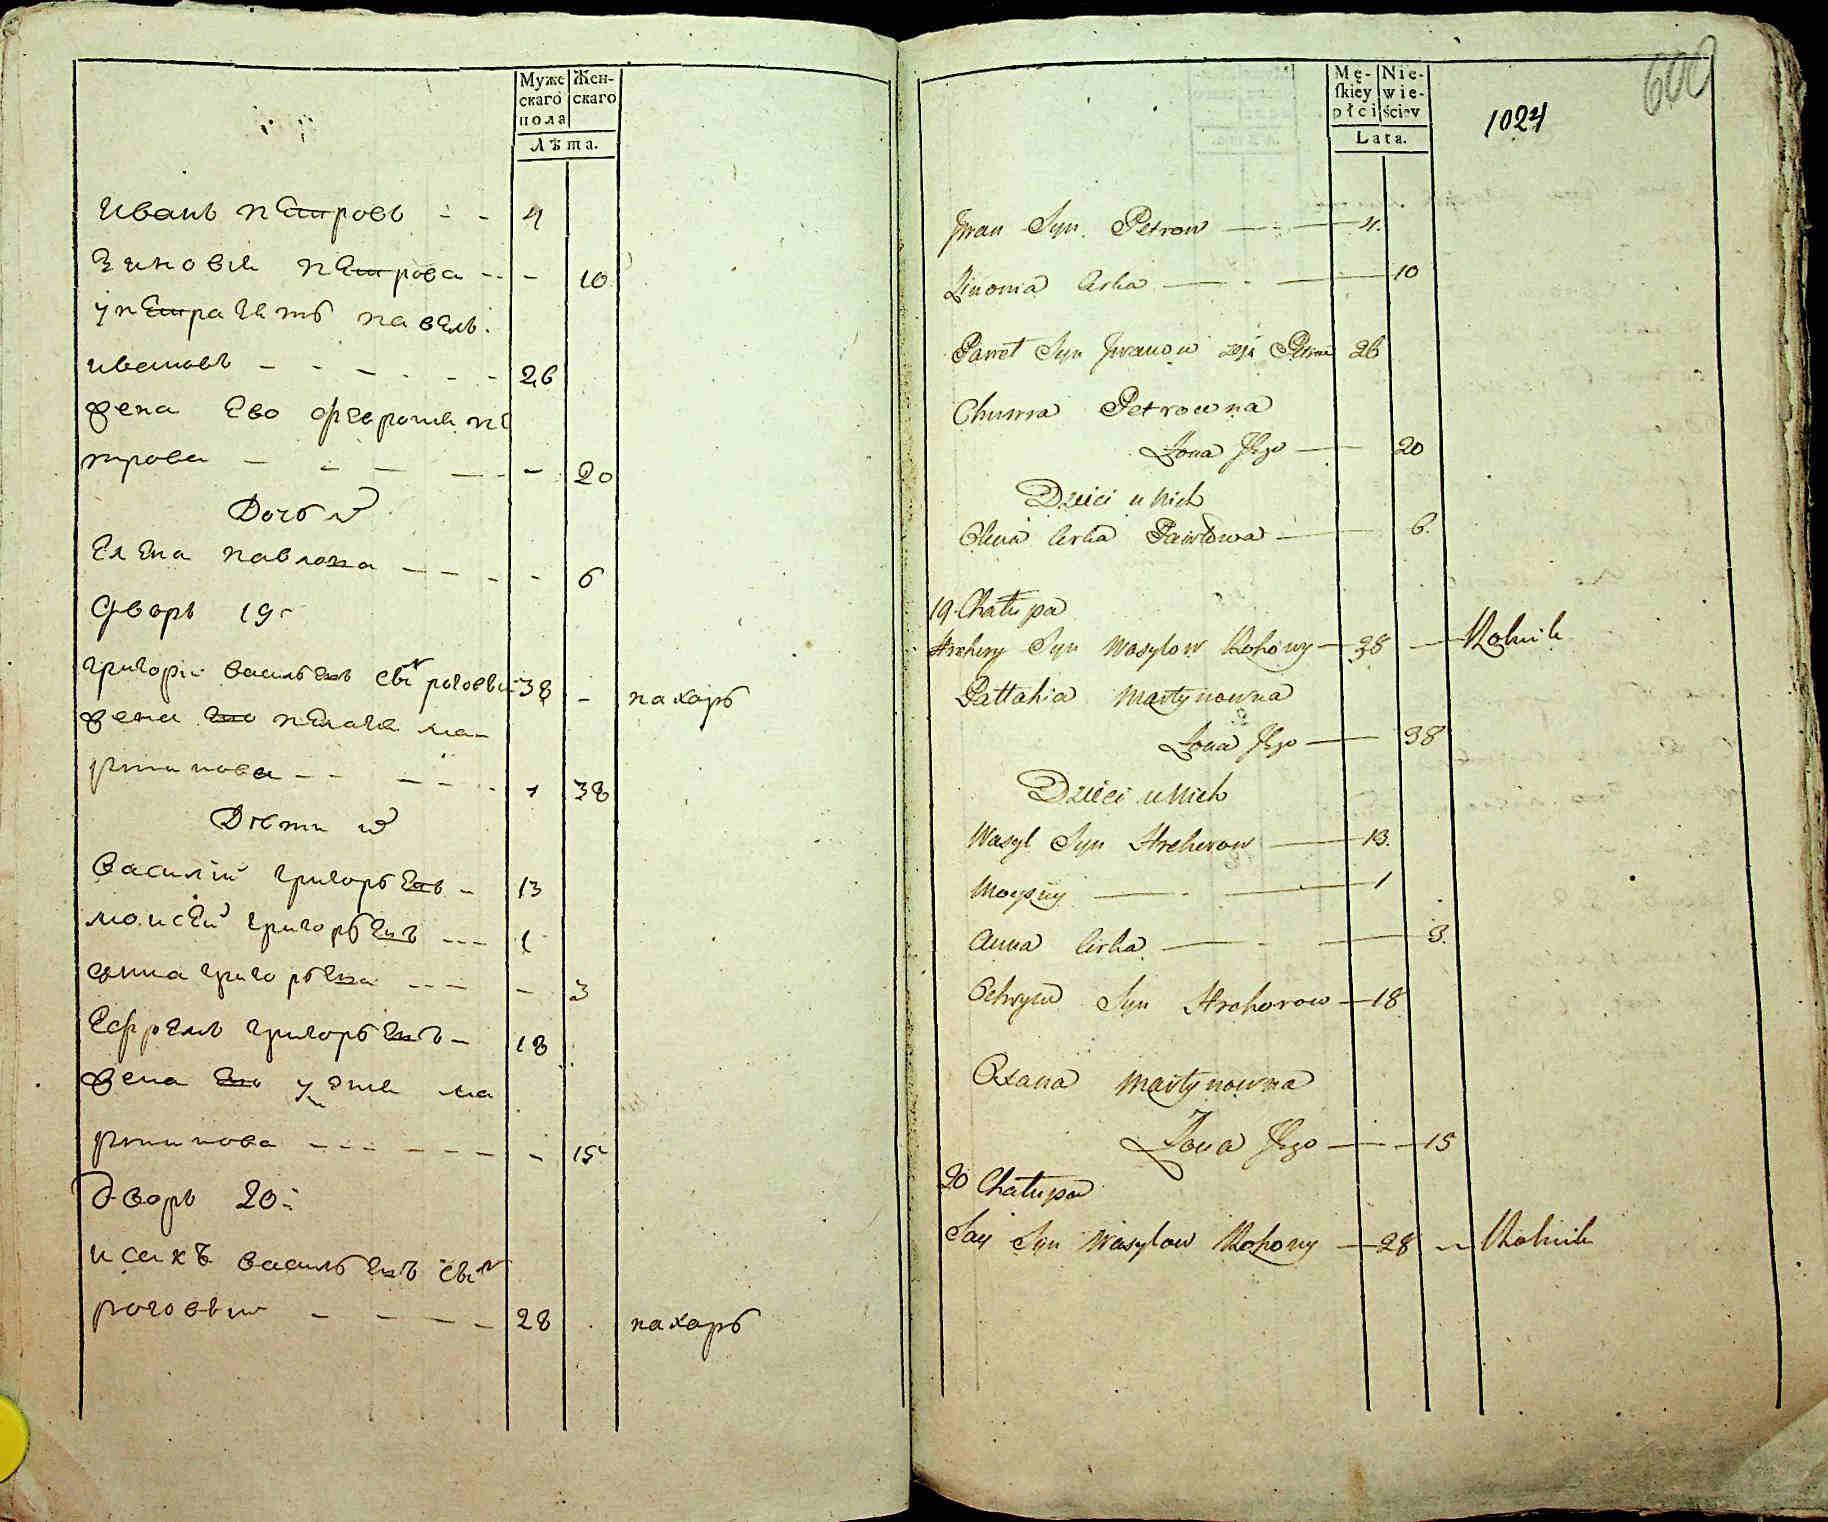 Муже
скаго
пола
Жен-
скаго
Лѣта.
Иванъ петровъ - - 4
Зиновія петрова - - - 10
у петра зять павелъ
ивановъ - - - - - - 26
жена ево феврония пе
трова - - - - - - 20
Дочь их
Елена павлова - - - - 6
Дворъ 19:
григорій васильевъ сынъ роговый 38 - пахарь
жена ево пелагея ма-
ртинова - - - - - - 38
Дѣти их
Василій григорьевъ - 13
моисей григорьевъ - - - 1
анна григорьева - - - - 3
Ефремъ григорьевъ - 18
жена ево ма
ртинова - - - - - - - - 15
Дворъ 20:
исакъ васильевъ сынъ
роговый - - - - - 28 пахарь
600
1024
Mę-
skiey
płci
Nie-
wie-
ściey
Lata.
Jwan Syn Petrow — — 4.
Zinowia Corka — - — 10
Paweł Syn Jwanow zęć Petra 26
Petrowna
Żona Jego — 20
Dzieci u Nich
Olena Corka Pawłowa — 6.
19. Chałupa
Hrehory Syn Wasylow Rohowy — 38 — Rolnik
Pallahia Martynowna
Żona Jego — 38
Dzieci u Nich
Wasyl Syn Hrehorow — 13.
Moysiey — - — 1
Anna Corka — - — 3.
Syn Hrehorow — 18
Oxana Martynowna
Żona Jego — — 15
20 Chałupa
Syn Wasylow Rohowy — 28 — Rolnik